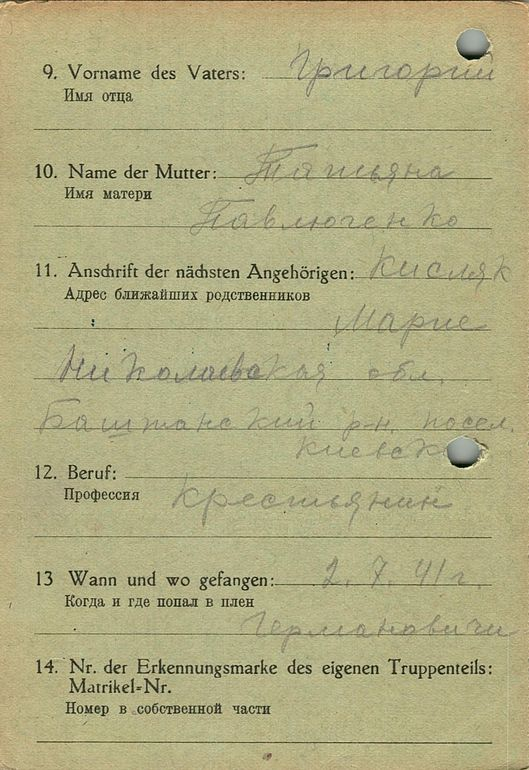 9. Vorname des Vaters: Григорий
Имя отца
10. Name der Mutter: Татьяна
Имя матери
Павлюченко
11. Anschrift der nächsten Angehörigen: Кисляк
Адрес ближайших родственников
Марие
Николаевская обл.
Баштанский р-н. посел.
12. Beruf:
Профессия Крестьянин
13 Wann und wo gefangen: 2. 7. 41 г.
Когда и где попал в плен
Германовичи
14. Nr. der Erkennungsmarke des eigenen Truppenteils:
Matrikel-Nr.
Номер в собственной части